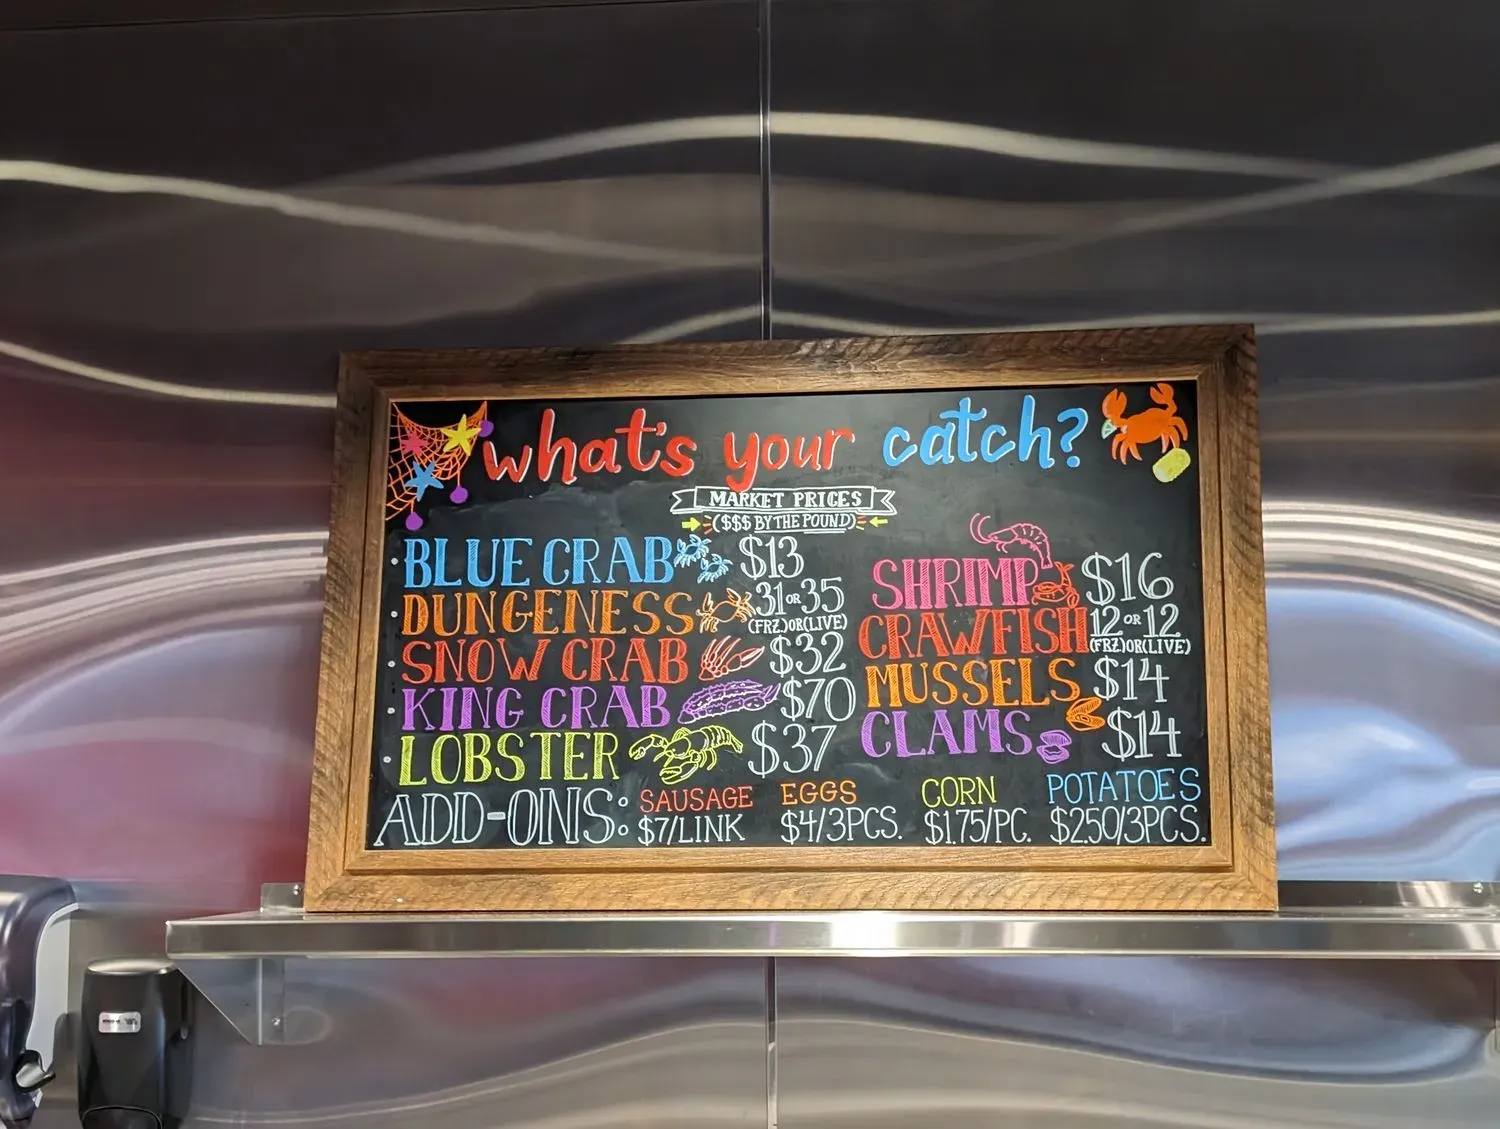 what's your catch?
MARKET PRICES
($$$ BY THE POUND)
BLUE CRAB $13
DUNGENESS 31 OR 35
(FRZ.) OR (LIVE)
SNOW CRAB $32
KING CRAB $70
LOBSTER $37
SHRIMP $16
CRAWFISH 12 OR 12
(FRZ.) OR (LIVE)
MUSSELS $14
CLAMS $14
ADD-ONS:
SAUSAGE
$7/LINK
EGGS
$4/3PCS.
CORN
$1.75/PC.
POTATOES
$2.50/3PCS.